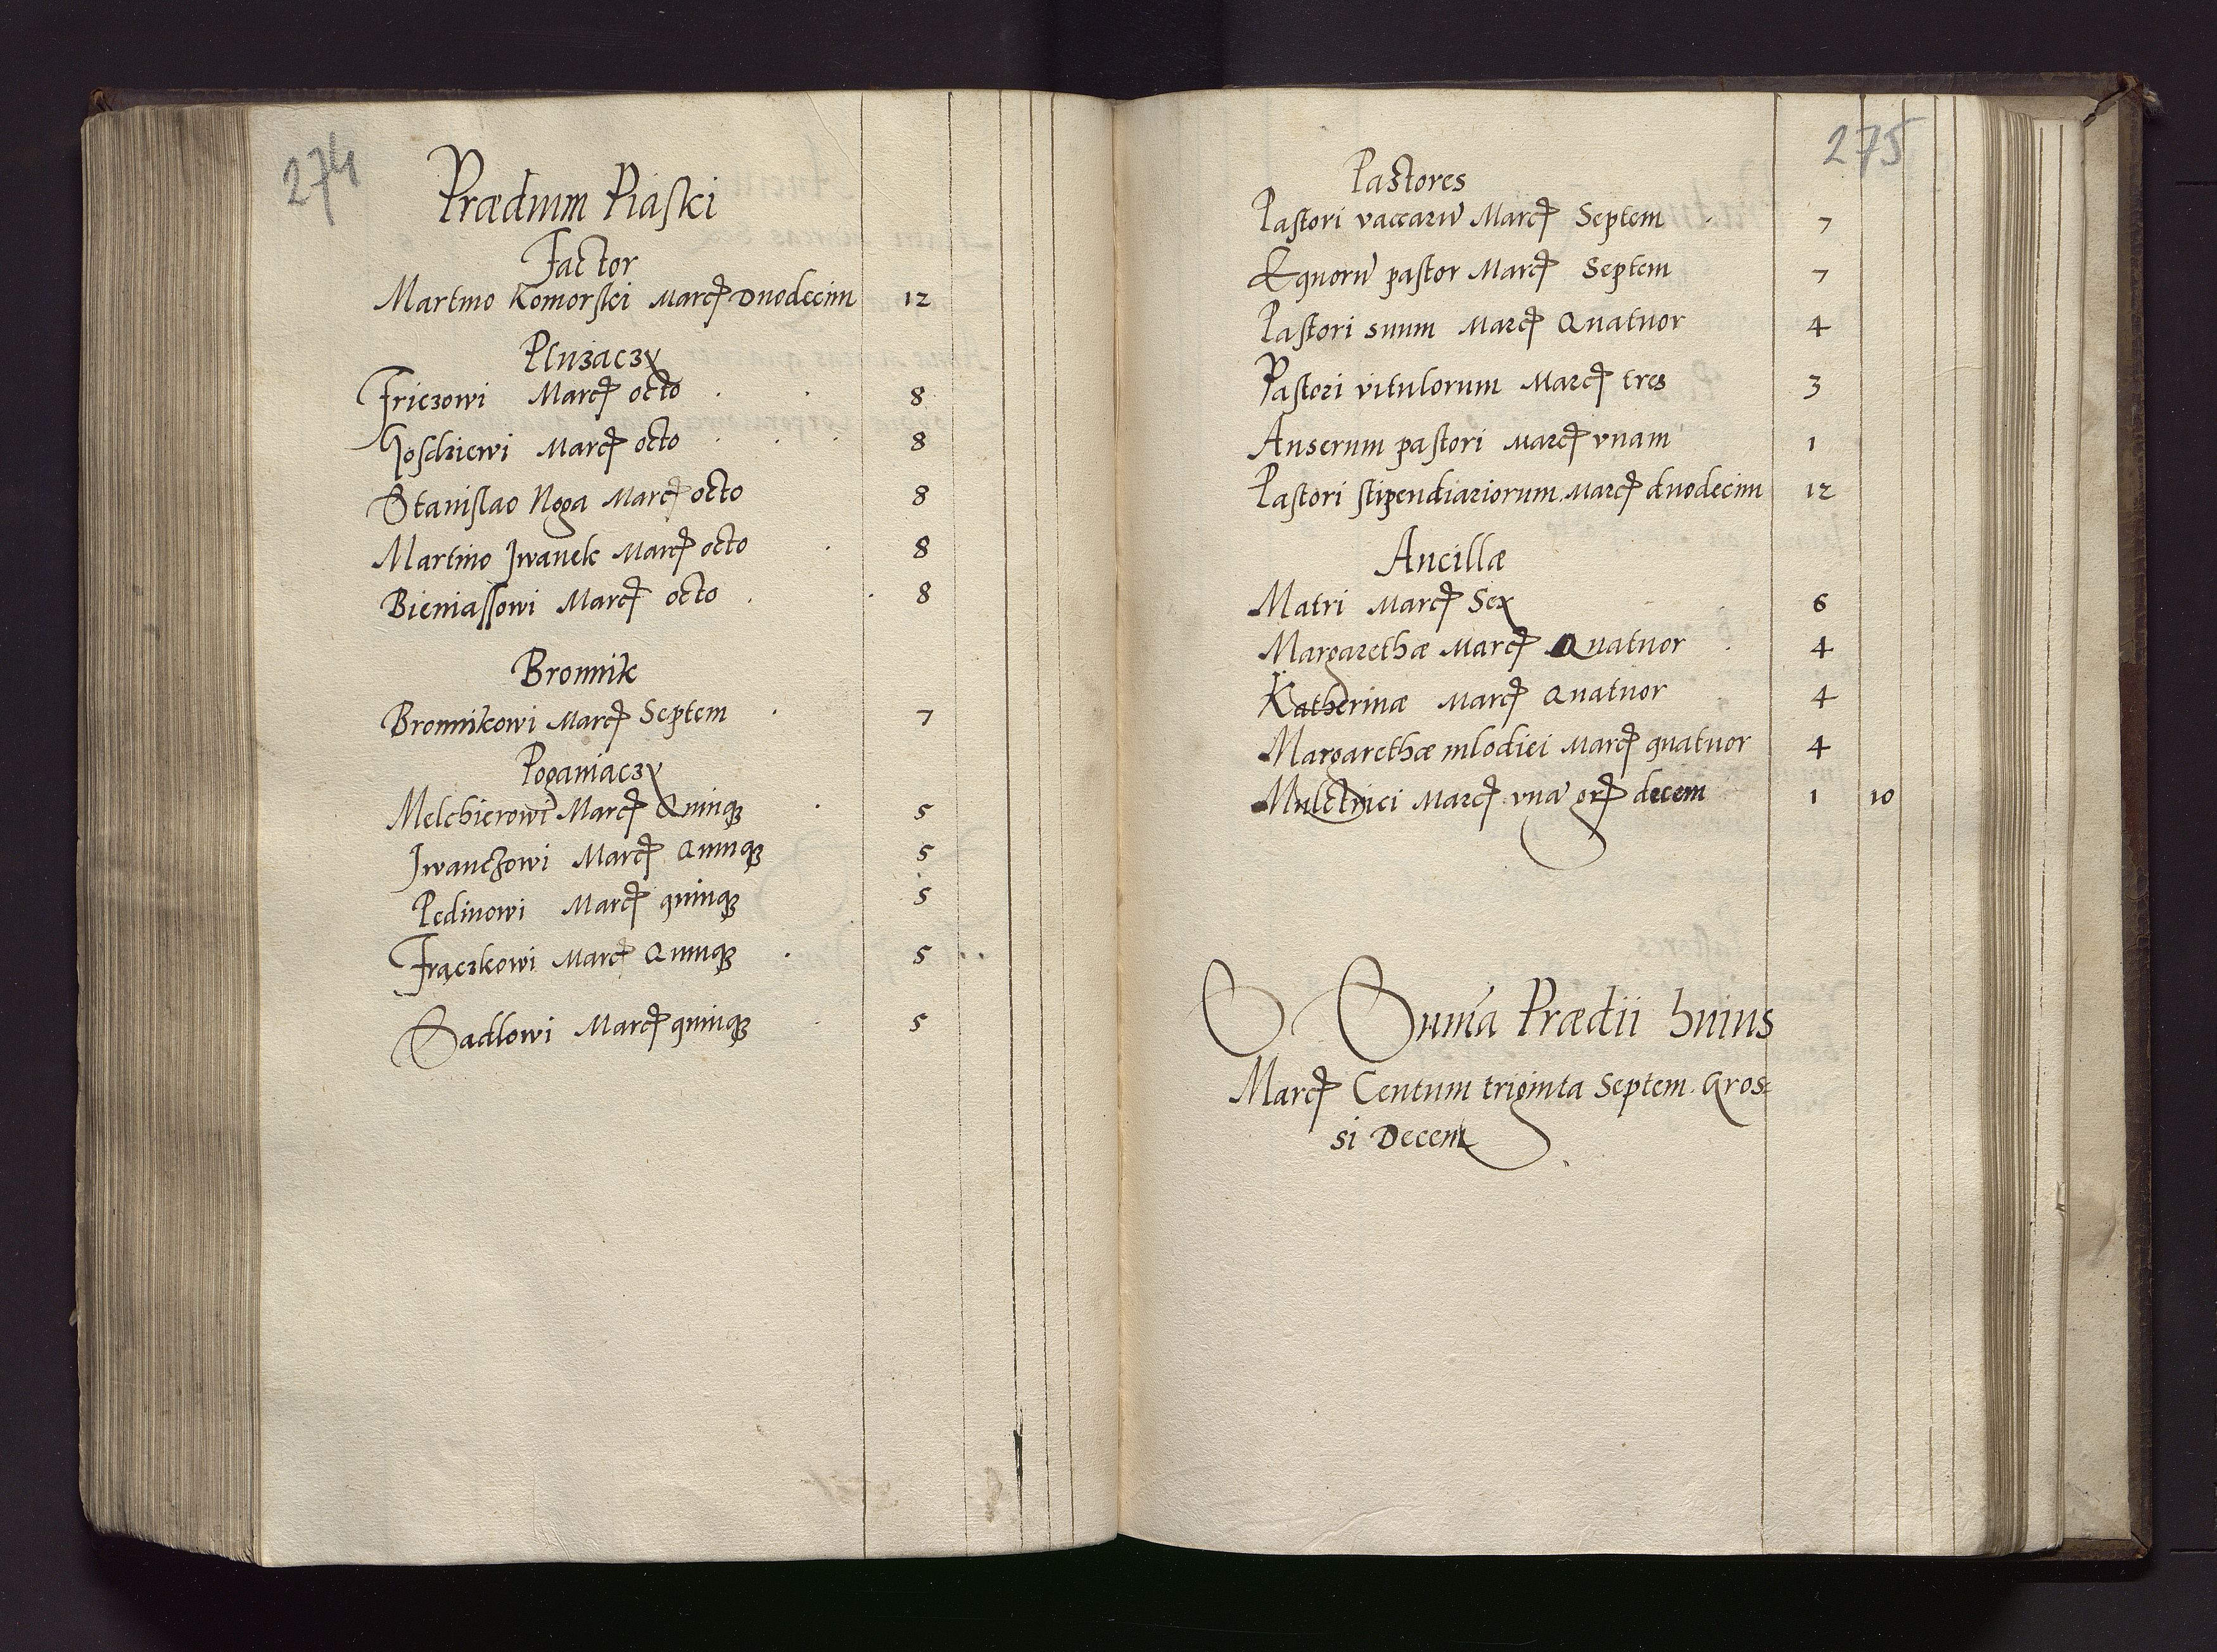 274
Prædium Piaski
Factor
Martino Komorski Marcę Duodecim 12
Pluzaczÿ
Friczowi Marcę octo 8
Goschiewi Marcę octo 8
Stanislao Noga Marcę octo 8
Martino Jwanek Marcę octo 8
Bieniassowi Marcę octo 8
Bronnik
Bronnikowi Marcę Septem 7
Poganiaczÿ
Melchierowi Marcę Quinqꝫ 5
Jwanczowi Marcę Quinqꝫ 5
Pedinowi Marcę quinqꝫ 5
Frączkowi Marcę Quinqꝫ 5
Sadlowi Marcę quinqꝫ 5
275
Pastores
Pastori vaccarū Marcę Septem 7
Equorū pastor Marcę Septem 7
Pastori suum Marcę Quatuor 4
Pastori vitulorum Marcę tres 3
Anserum pastori Marcę vnam 1
Pastori stipendiariorum Marcę duodecim 12
Ancillæ
Matri Marcę Sex 6
Margarethæ Marcę Quatuor 4
Katherinæ Marcę Quatuor 4
Margarethæ mlodiei Marcę quatuor 4
Mulctrici Marcę vnā grę decem 1 10
Sum̄a Prædii huius
Marcę Centum triginta Septem Gros=
si Decem